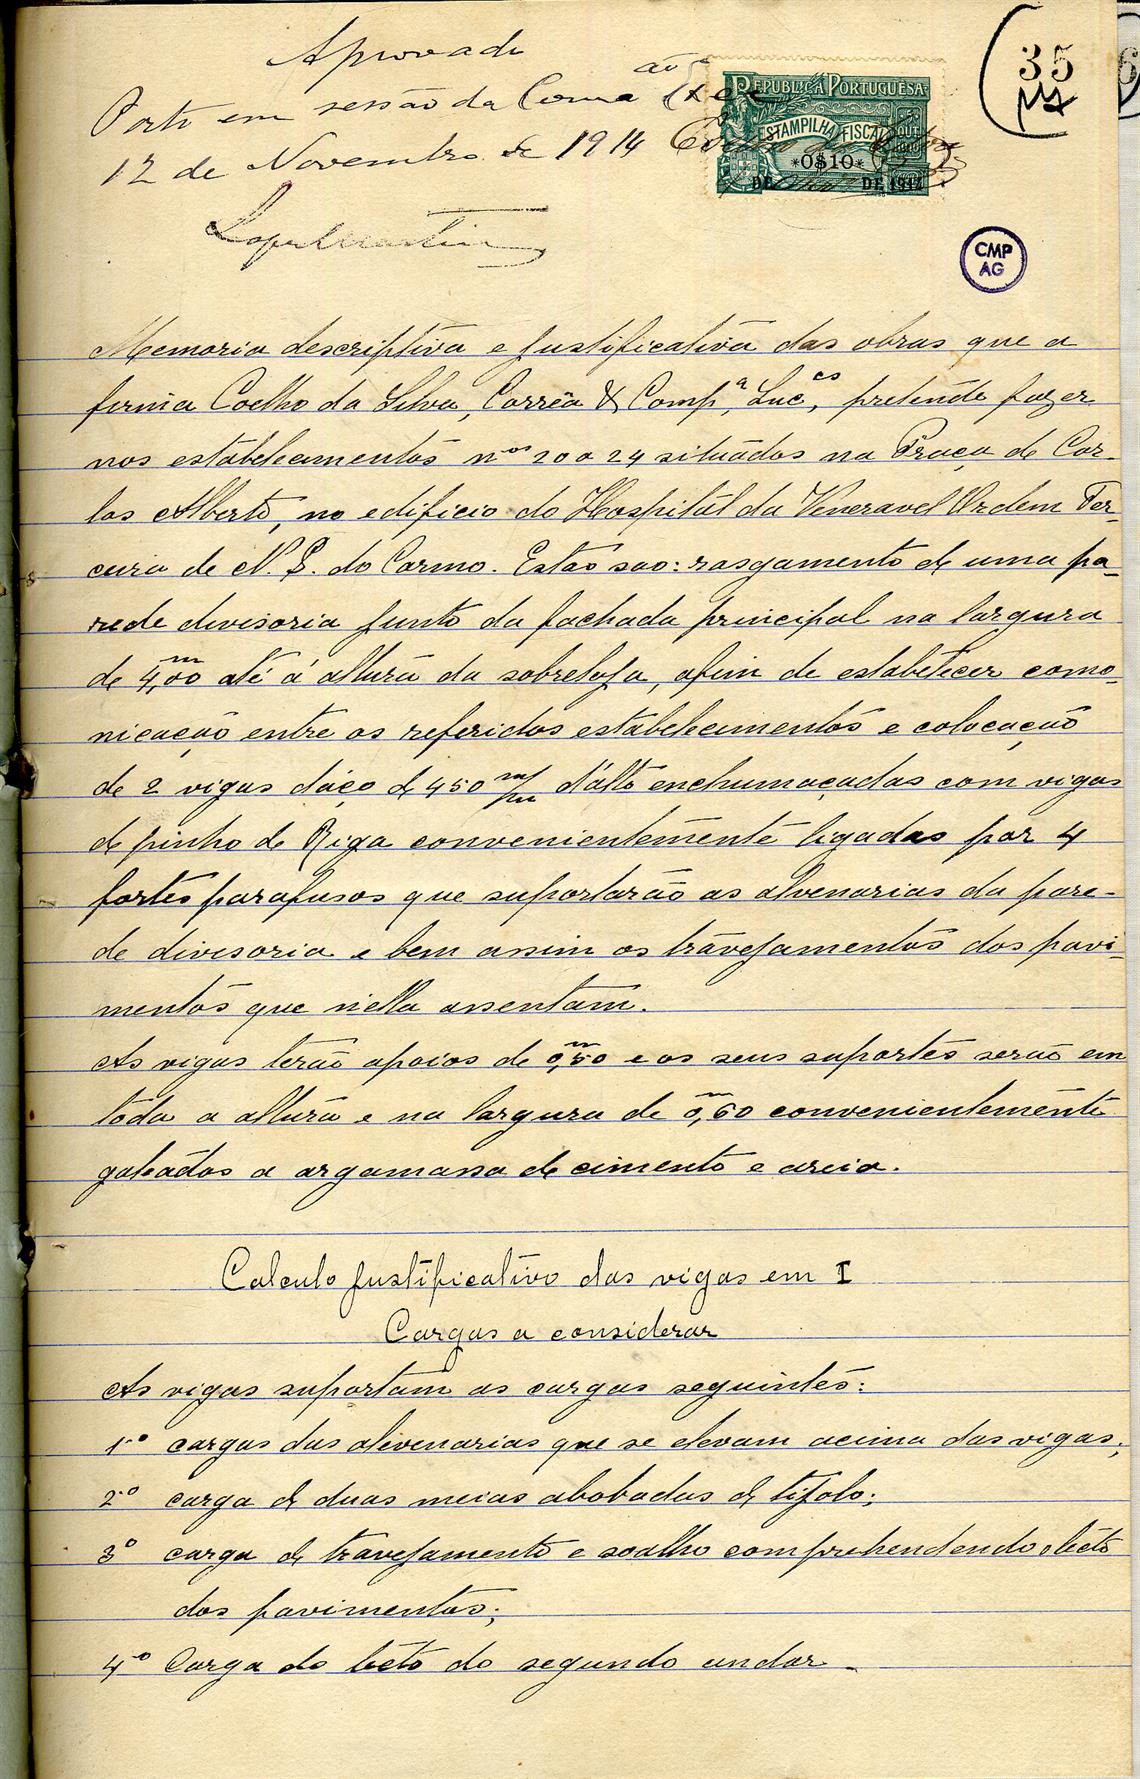 Aprovado
Porto em sessão da Com.ão Ex.
12 de Novembro de 1914
Lopes Martins
REPUBLICA PORTUGUESA
ESTAMPILHA FISCAL
*0$10*
DE DE 1914
35
6
CMP
AG
Memoria descriptiva e justificativa das obras que a
firma Coelho da Silva, Corrêa & Comp.ª, Suc.es, pretende fazer
nos estabelecimentos nos 20 a 24 situados na Praça de Car-
los Alberto, no edificio do Hospital da Veneravel Ordem Ter-
ceira de N. S. do Carmo. Estas sao: rasgamento de uma pa-
rede divisoria junto da fachada principal na largura
de 4,m00 até á altura da sobreloja, afim de estabelecer como-
nicação entre os referidos estabelecimentos e colocação
de 2 vigas d'aço de 450 m/m d'alto enchumaçadas com vigas
de pinho de Riga convenientemente ligadas por 4
fortes parafusos que suportarão as alvenarias da pare-
de divisoria e bem assim os travejamentos dos pavi-
mentos que nella assentam.
As vigas terão apoios de 0,m50 e os seus suportes serão em
toda a altura e na largura de 0,m60 convenientemente
galeados a argamassa de cimento e areia.
Calculo justificativo das vigas em I
Cargas a considerar
As vigas suportam as cargas seguintes:
1º cargas das alvenarias que se elevam acima das vigas;
2º carga de duas meias abobadas de tijolo;
3º carga de travejamento e soalho comprehendendo o tecto
dos pavimentos;
4º Carga do tecto do segundo andar.